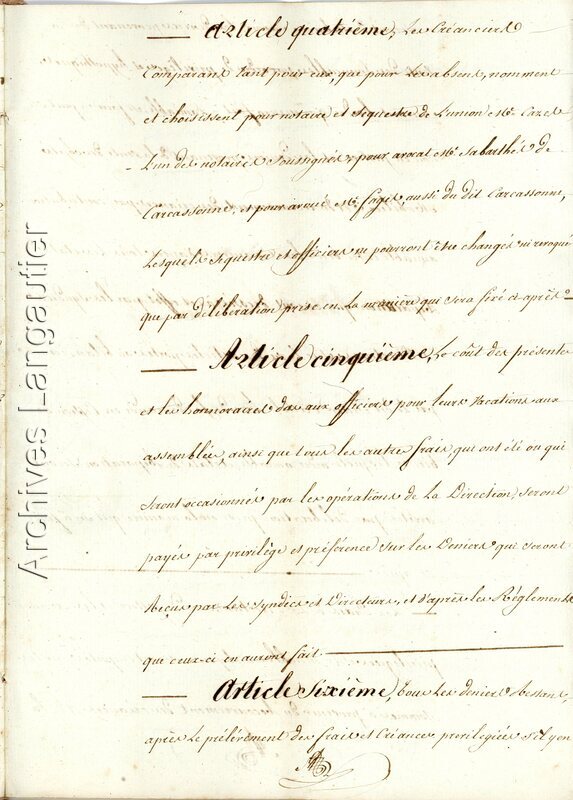 Article quatrième, Les Créanciers
Comparans tant pour eux, que pour les absens, nomment
et choisissent pour notaire et sequestre de L'union Mr. Cazes
L'un des notaires soussignés, pour avocat Mr. Sabarthés de
Carcassonne, et pour avoué Mr. Fages aussi du dit Carcassonne,
Lesquels sequestre et officiers ne pourront être changés ni revoqués
que par deliberation prise en La manière qui sera fixé ci après.
Article cinquième, Le coût des présentes
et les honnoraires dus aux officiers pour leurs Vacations aux
assemblées, ainsi que tous les autres frais qui ont été ou qui
seront occasionnés par les opérations de la Direction, seront
payés par privilège et préférence sur les Deniers qui seront
Recus par Les Syndics et Directeurs, et d'après les Réglements
que ceux-ci en auront fait.
Article Sixième, tous les deniers Restans,
après Le prélèvement des frais et Créances privilegiées s'il y en
Archives Langautier